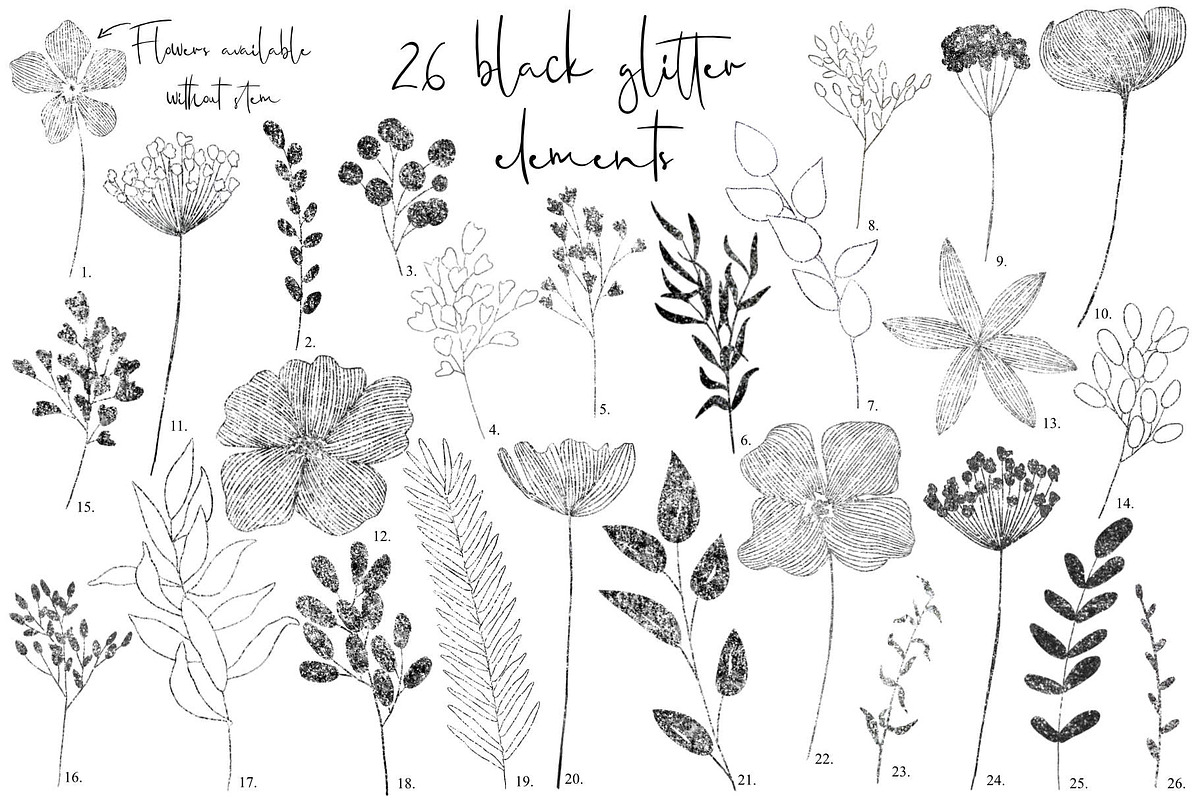 Flowers available
without stem
26 black glitter
elements
1.
2.
3.
4.
5.
6.
7.
8.
9.
10.
11.
12.
13.
14.
15.
16.
17.
18.
19.
20.
21.
22.
23.
24.
25.
26.